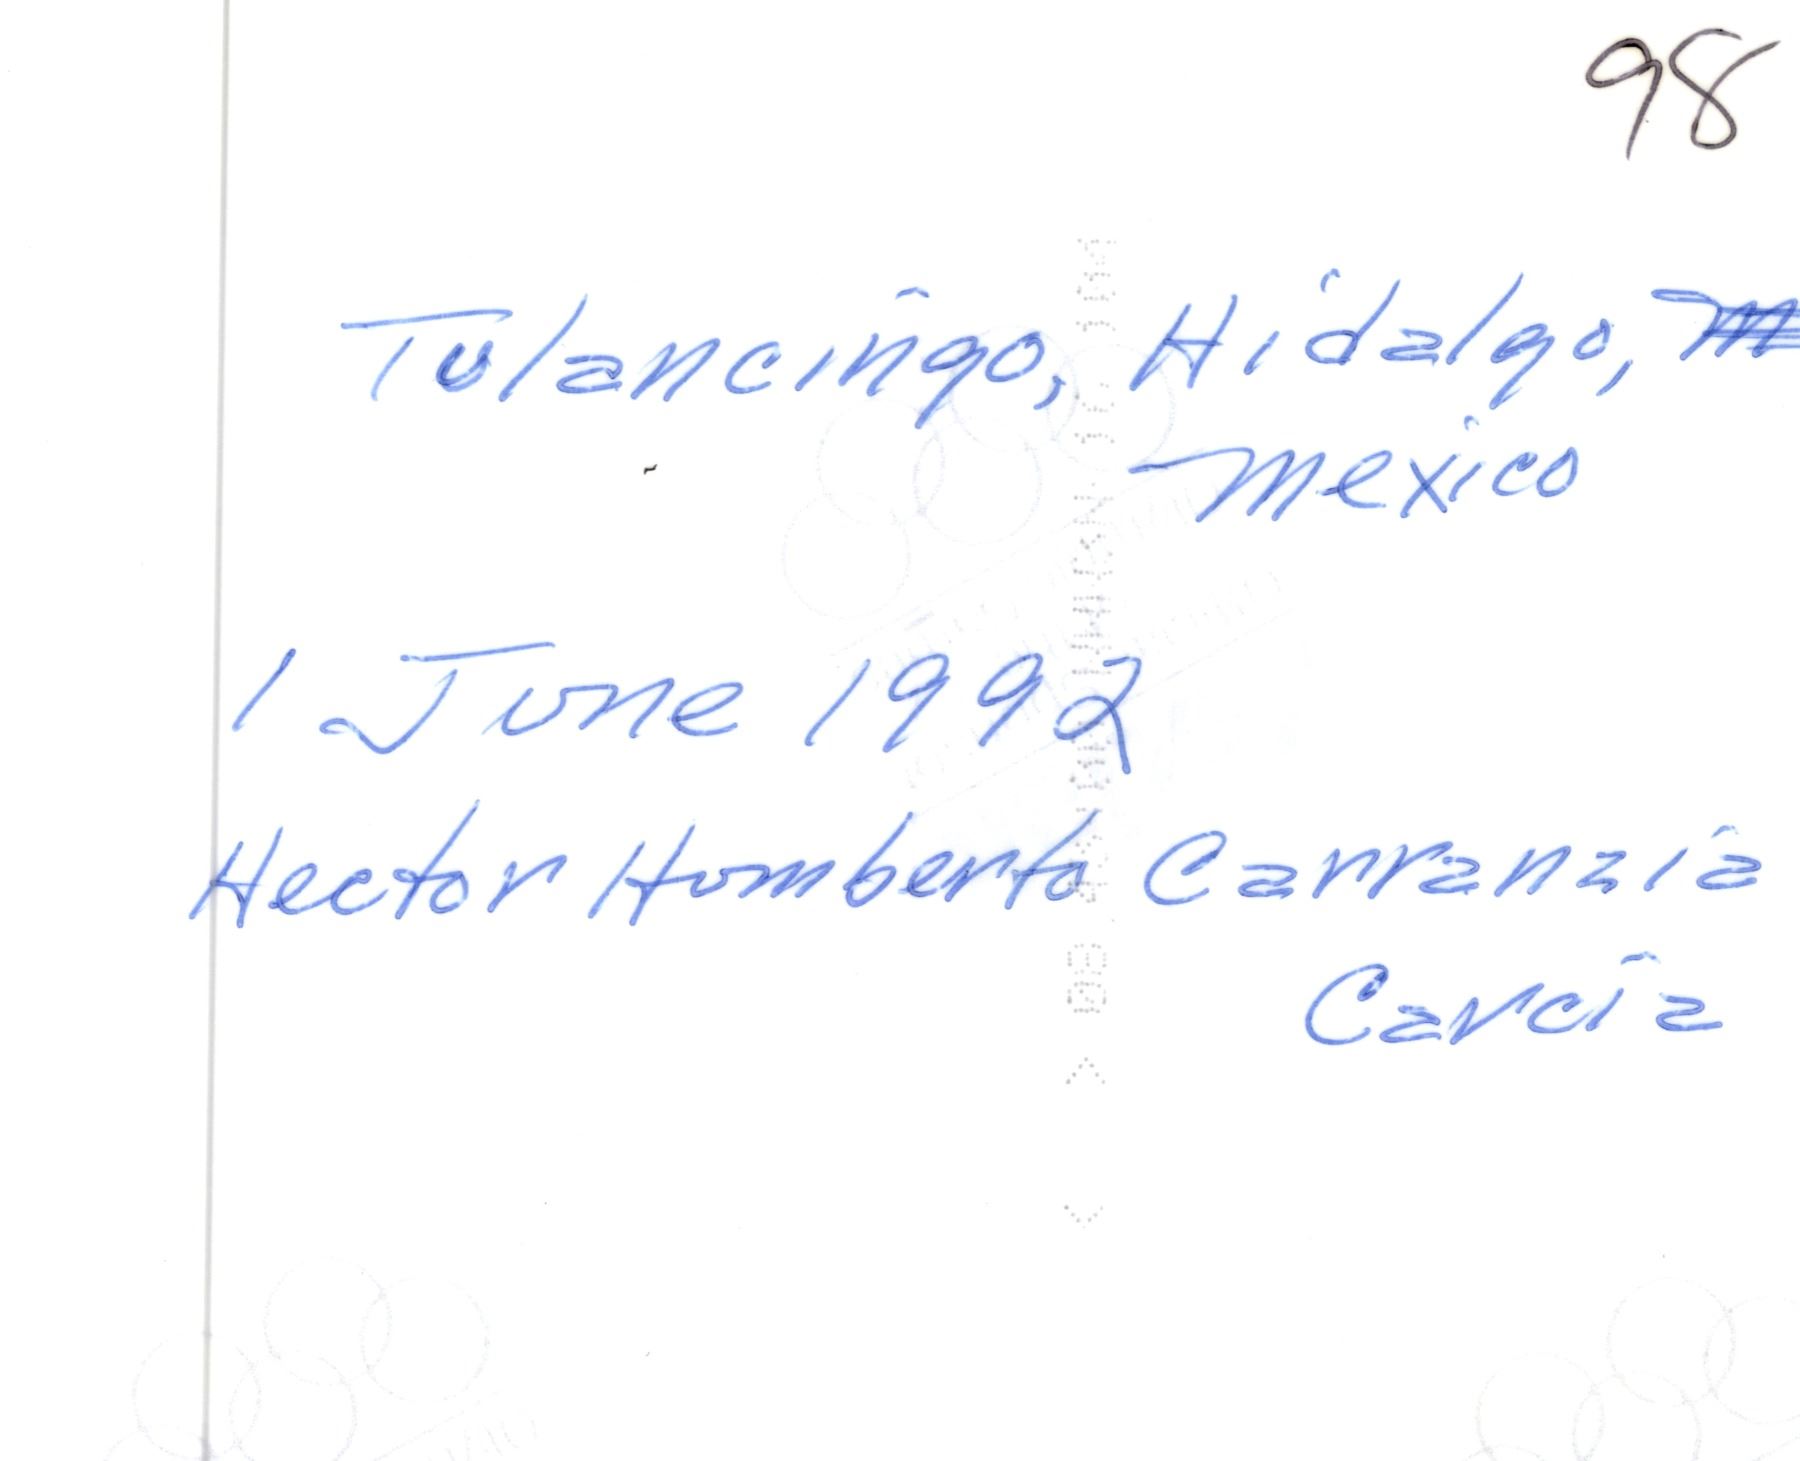 98
Tulancingo, Hidalgo,
Mexico
1 June 1992
Hector Homberto Carranzia
Carcia